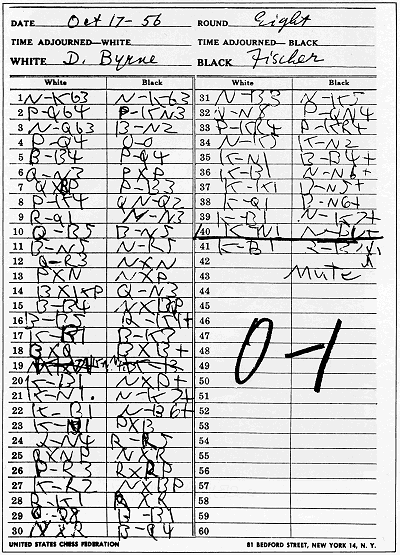 DATE Oct 17-56 ROUND Eight
TIME ADJOURNED—WHITE TIME ADJOURNED — BLACK
WHITE D. Byrne BLACK Fischer
White Black White Black
1 N-KB3 N-KB3 31 N-B3 N-K5
2 P-QB4 P-KN3 32 Q-N8 P-QN4
3 N-QB3 B-N2 33 P-R4 P-KR4
4 P-Q4 O-O 34 N-K5 K-N2
5 B-B4 P-Q4 35 K-N1 B-B4+
6 Q-N3 PXP 36 K-B1 N-N6+
7 QXBP P-B3 37 K-K1 B-N5+
8 P-K4 QN-Q2 38 K-Q1 B-N6+
9 R-Q1 N-N3 39 K-B1 N-K7+
10 Q-B5 B-N5 40 K-N1 N-B6+
11 B-N5 N-R5 41 K-B1 R-B7
12 Q-R3 NXN 42
13 PXN NXP 43 Mate
14 BXKP Q-N3 44
15 B-B4 NXBP 45
16 B-B5 KR-K1+ 46
17 K-B1 B-K3 47
18 BXQ BXB+ 48 0-1
19 49
20 K-B1 NXP+ 50
21 K-N1. N-K7+ 51
22 K-B1 N-B6+ 52
23 K-N1 PXB 53
24 Q-N4 R-R5 54
25 QXNP NXR 55
26 P-R3 RXRP 56
27 K-R2 NXBP 57
28 R-K1 RXR 58
29 Q-Q8 B-B1 59
30 NXR B-Q4 60
UNITED STATES CHESS FEDERATION 81 BEDFORD STREET, NEW YORK 14, N. Y.